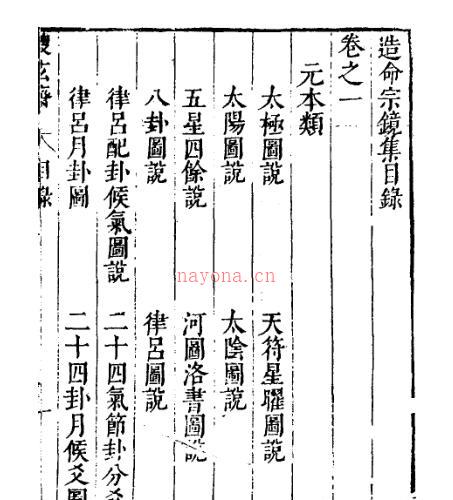 造命宗鏡集目錄
卷之一
元本類
太極圖說 天符星曜圖說
太陽圖說 太陰圖說
五星四餘說 河圖洛書圖說
八卦圖說 律呂圖說
律呂配卦候氣圖說 二十四氣節卦分爻
律呂月卦圖 二十四卦月候爻圖
目錄
nayona.cn